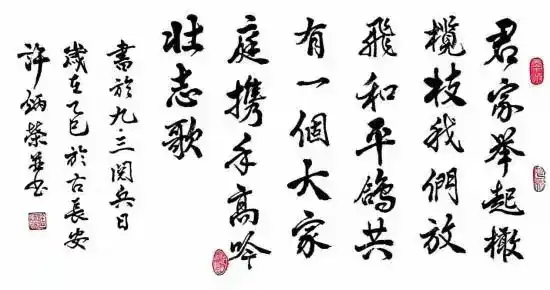 君家举起橄
榄枝我們放
飛和平鴿共
有一個大家
庭携手高吟
壮志歌
書於九·三阅兵日
歲在乙巳於古長安
許炳榮並书